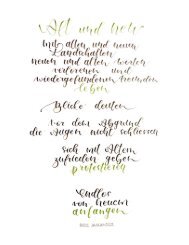 "Alt und neu"
Mit alten und neuen
Landschaften
neuen und alten Worten
verlorenen und
wiedergefundenen Freunden
leben
Blicke deuten
vor dem Abgrund
die Augen nicht schliessen
sich mit Altem
zufrieden geben
protestieren
Endlos
von neuem
anfangen
ROSE AUSLÄNDER